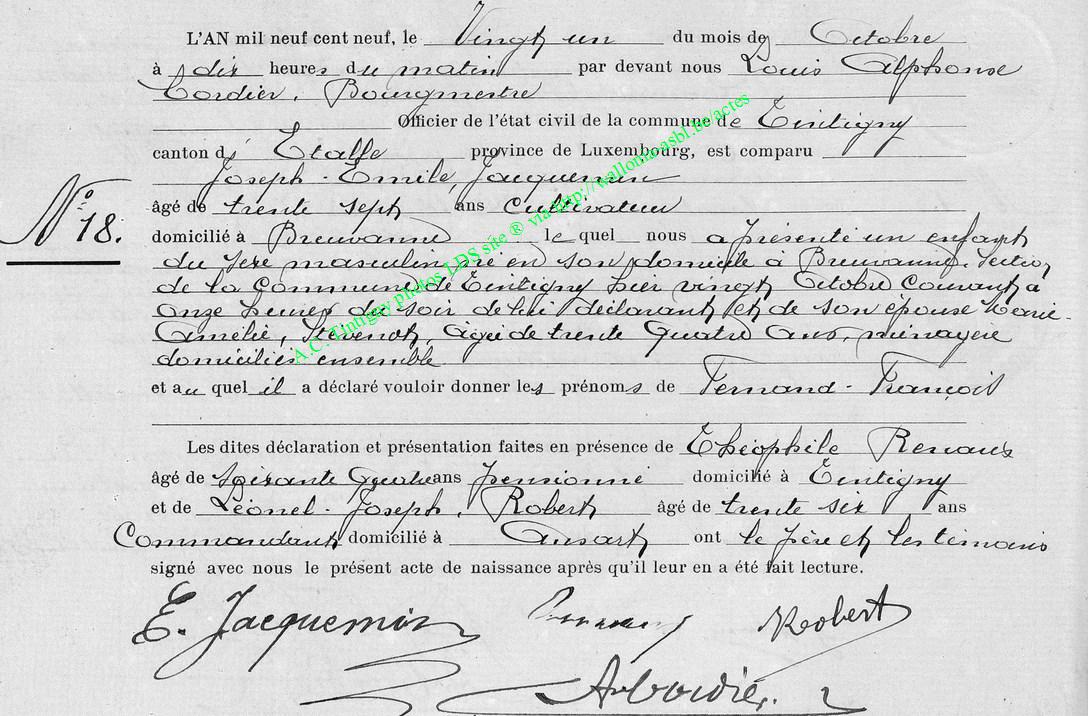 L'AN mil neuf cent neuf, le Vingt un du mois de Octobre
à dix heures du matin par devant nous Louis Alphonse
Cordier, Bourgmestre
Officier de l'état civil de la commune de Tintigny
canton d' Etalle province de Luxembourg, est comparu
Joseph-Emile, Jacquemin
âgé de trente sept ans cultivateur
N° 18.
domicilié à Breuvanne le quel nous a présenté un enfant
du sexe masculin né en son domicile à Breuvanne, section
de la Commune de Tintigny hier vingt Octobre courant à
onze heures du soir de lui déclarant et de son épouse Marie-
Amélie, Stévenot, âgée de trente quatre ans, ménagère
domiciliés ensemble
et au quel il a déclaré vouloir donner les prénoms de Fernand-François
Les dites déclaration et présentation faites en présence de Théophile Renaux
âgé de soixante quatre ans pensionné domicilié à Tintigny
et de Léonel-Joseph, Robert âgé de trente six ans
Commandant domicilié à Ansart ont le père et les témoins
signé avec nous le présent acte de naissance après qu'il leur en a été fait lecture.
E. Jacquemin Robert
A.C. Tintigny photos LDS site ® via http://wallonia-asbl.be/actes